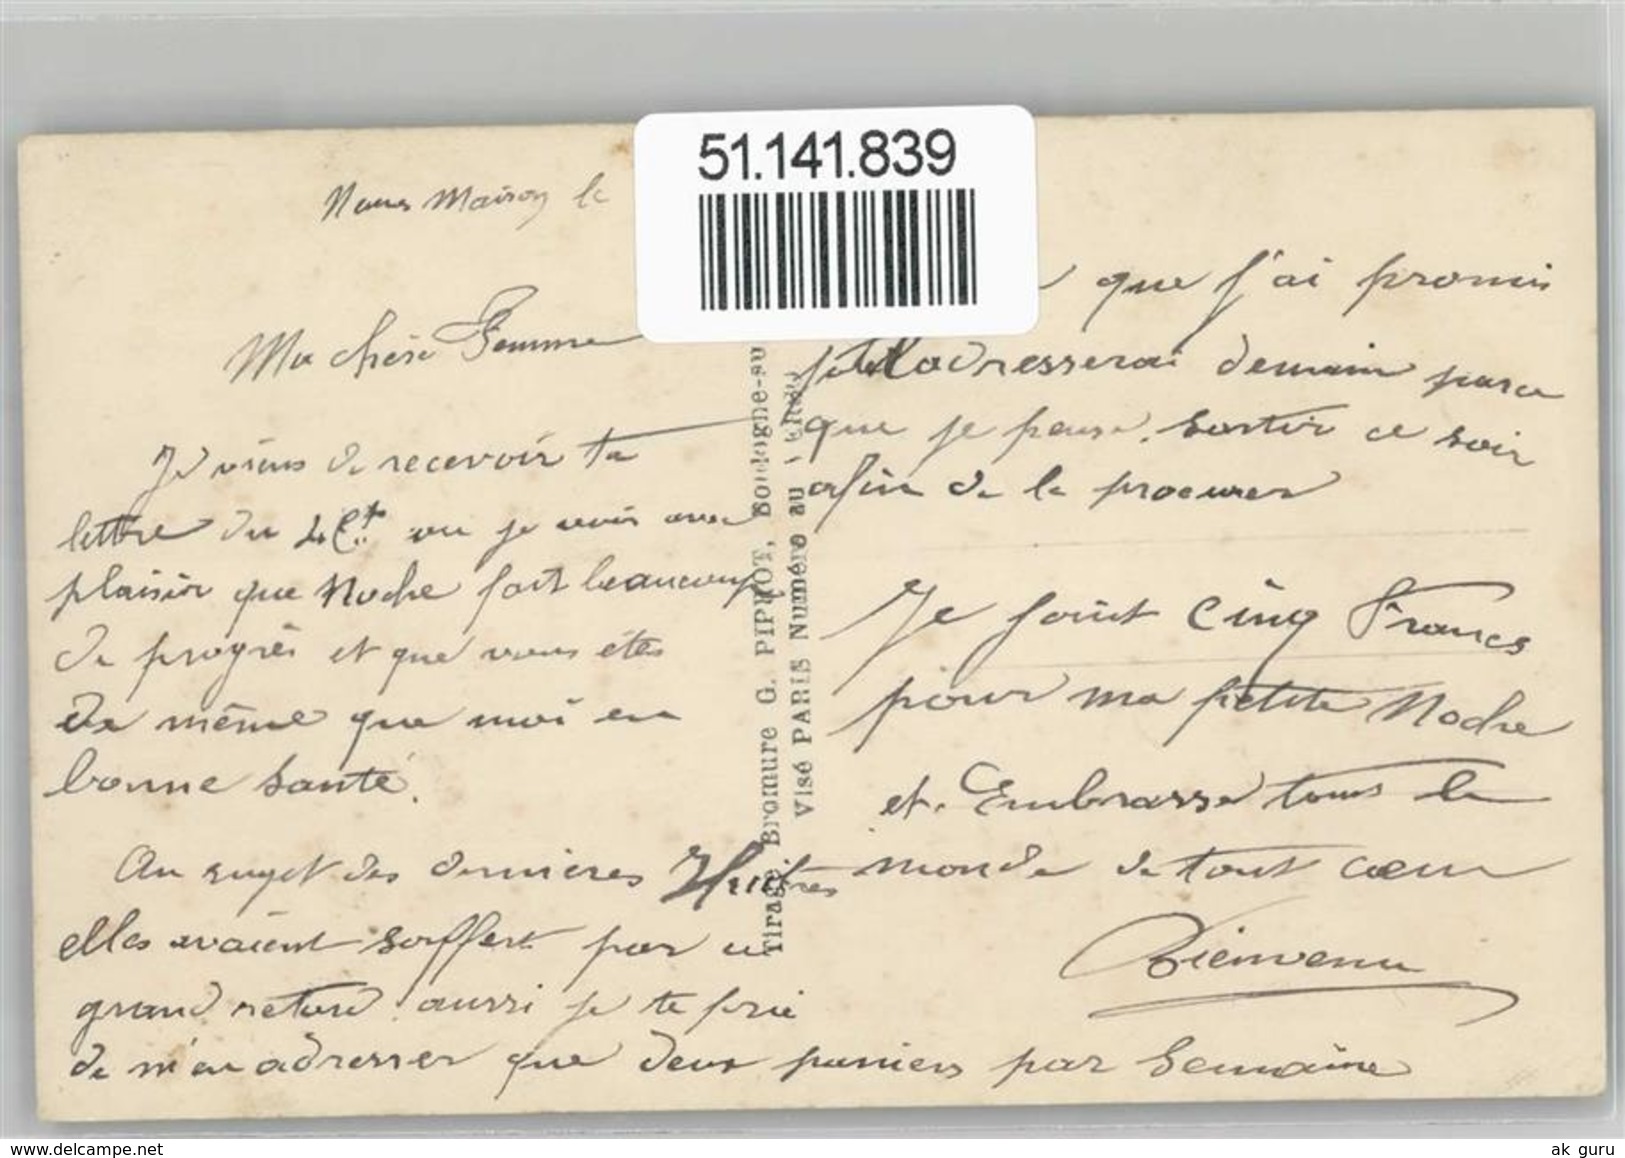 51.141.839
Maison le
Ma chère Femme
Je viens de recevoir ta
lettre du 4 Ct ou je vois avec
plaisir que Noche fait beaucoup
de progrès et que vous étes
de même que moi en
bonne santé.
Au sujet des dernieres Huitres
elles avaient souffert par un
grand retard aussi je te prie
de m'en adresser que deux paniers par Semaine
que j'ai promis
adresserai demain parce
que je pense sortir ce soir
afin de le procurer
Je joint Cinq Francs
pour ma petite Noche
et Embrasse tous le
monde de tout cœur
Bienvenu
Tirage Bromure G. PIPROT, Boulogne-su
Visé PARIS Numéro au
ak guru
www.delcampe.net